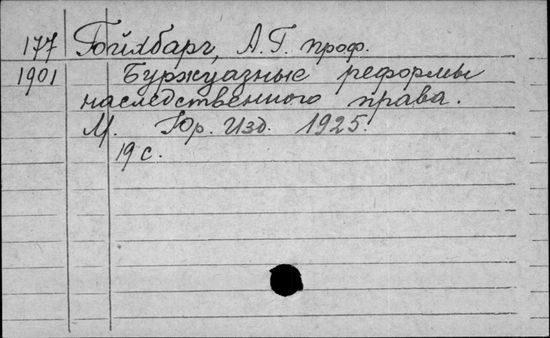 177 Гойхбарг, А.Г. проф.
1901 Буржуазные реформы
наследственного права.
М. Юр. Изд. 1925.
19 с.